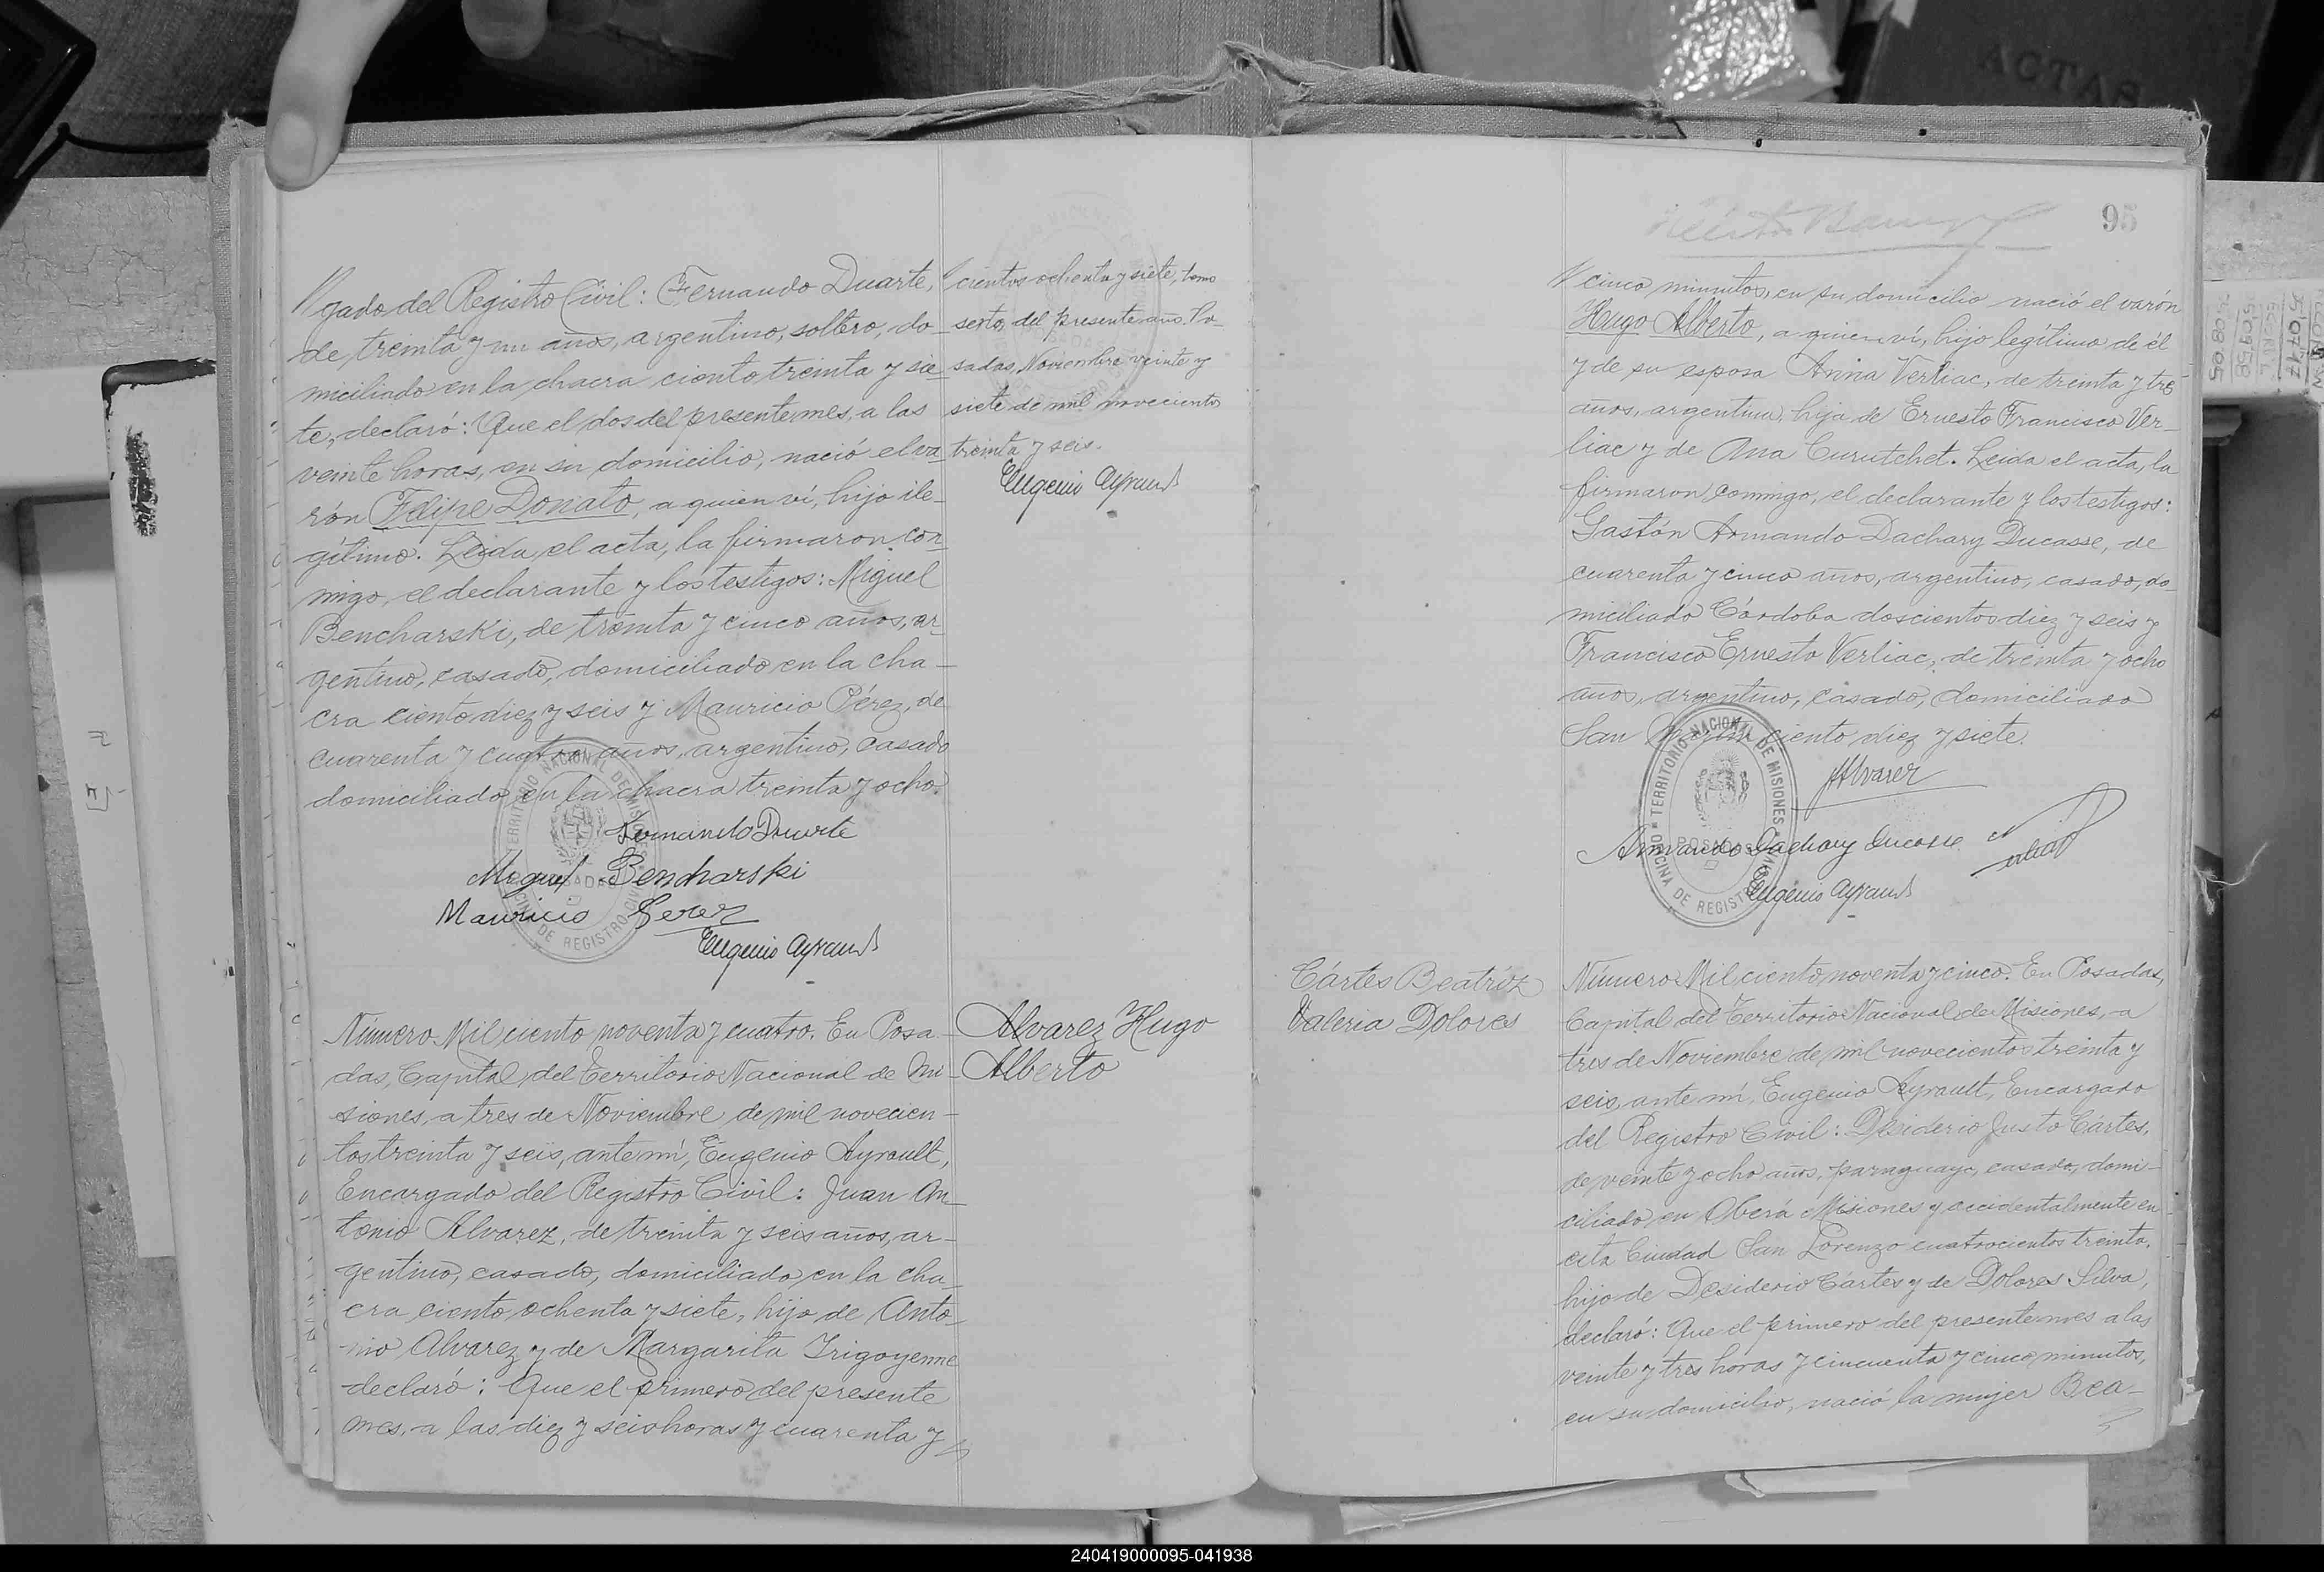 gado del Registro Civil: Fernando Duarte,
de treinta y un años, argentino, soltero, do-
miciliado en la chacra ciento treinta y sie-
te, declaró: Que el dos del presente mes, a las
veinte horas, en su domicilio, nació el va-
rón Felipe Donato, a quien ví, hijo ile-
gítimo. Leida el acta, la firmaron con-
migo, el declarante y los testigos: Miguel
Bencharski, de treinta y cinco años, ar-
gentino, casado, domiciliado en la cha-
cra ciento diez y seis y Mauricio Pérez, de
cuarenta y cuatro años, argentino, casado
domiciliado en la chacra treinta y ocho.
Fernando Duarte
Miguel Bencharski
Mauricio Perez
Eugenio Ayrault
TERRITORIO NACIONAL DE MISIONES
OFICINA DE REGISTRO CIVIL
POSADAS
cientos ochenta y siete, tomo
sexto, del presente año. Po-
sadas, Noviembre veinte y
siete de mil novecientos
treinta y seis.
Eugenio Ayrault
Número Mil ciento noventa y cuatro. En Posa-
das, Capital del Territorio Nacional de Mi-
siones, a tres de Noviembre de mil novecien-
tos treinta y seis, ante mí, Eugenio Ayrault,
Encargado del Registro Civil: Juan An-
tonio Alvarez, de treinta y seis años, ar-
gentino, casado, domiciliado en la cha-
cra ciento ochenta y siete, hijo de Anto-
nio Alvarez y de Margarita Irigoyenne
declaró: Que el primero del presente
mes, a las diez y seis horas y cuarenta y
Alvarez Hugo
Alberto
95
cinco minutos, en su domicilio nació el varón
Hugo Alberto, a quien ví, hijo legítimo de él
y de su esposa Anna Verliac, de treinta y tres
años, argentina, hija de Ernesto Francisco Ver-
liac y de Ana Curutchet. Leida el acta, la
firmaron conmigo, el declarante y los testigos:
Gastón Armando Dachary Ducasse, de
cuarenta y cinco años, argentino, casado, do-
miciliado Córdoba doscientos diez y seis y
Francisco Ernesto Verliac, de treinta y ocho
años, argentino, casado, domiciliado
San Martín ciento diez y siete.
JAlvarez
Armando Dachary Ducasse
Eugenio Ayrault
TERRITORIO NACIONAL DE MISIONES
OFICINA DE REGISTRO CIVIL
POSADAS
Cártes Beatríz
Valeria Dolores
Número Mil ciento noventa y cinco. En Posadas,
Capital del Territorio Nacional de Misiones, a
tres de Noviembre de mil novecientos treinta y
seis, ante mí, Eugenio Ayrault, Encargado
del Registro Civil: Desiderio Justo Cártes,
de veinte y ocho años, paraguayo, casado, domi-
ciliado en Oberá Misiones y accidentalmente en
esta Ciudad San Lorenzo cuatrocientos treinta,
hijo de Desiderio Cártes y de Dolores Silva,
declaró: Que el primero del presente mes a las
veinte y tres horas y cincuenta y cinco minutos,
en su domicilio, nació la mujer Bea-
ACTAS
240419000095-041938